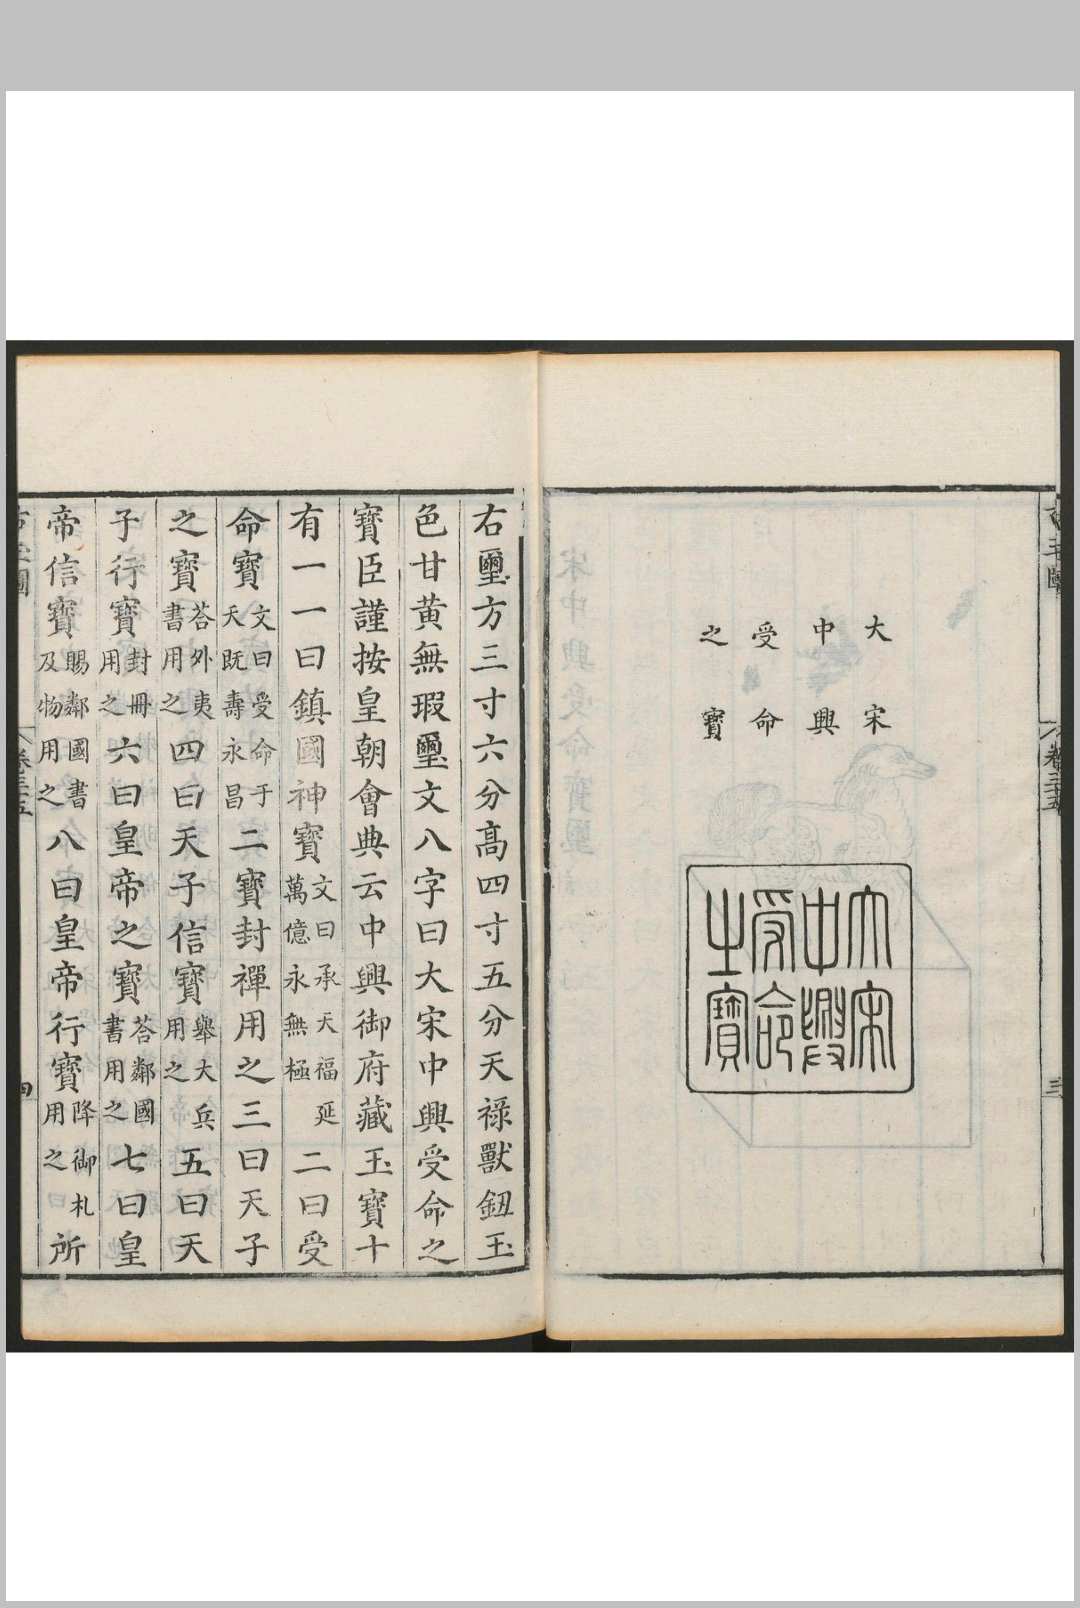 大宋
中興
受命
之寶
大宋
中興
受命
之寶
三
右璽方三寸六分高四寸五分天祿獸鈕玉
色甘黃無瑕璽文八字曰大宋中興受命之
寶臣謹按皇朝會典云中興御府藏玉寶十
有一一曰鎮國神寶文曰承天福延萬億永無極二曰受
命寶文曰受命于天既壽永昌二寶封禪用之三曰天子
之寶荅外夷書用之四曰天子信寶舉大兵用之五曰天
子行寶封冊用之六曰皇帝之寶荅鄰國書用之七曰皇
帝信寶賜鄰國書及物用之八曰皇帝行寶降御札用之所